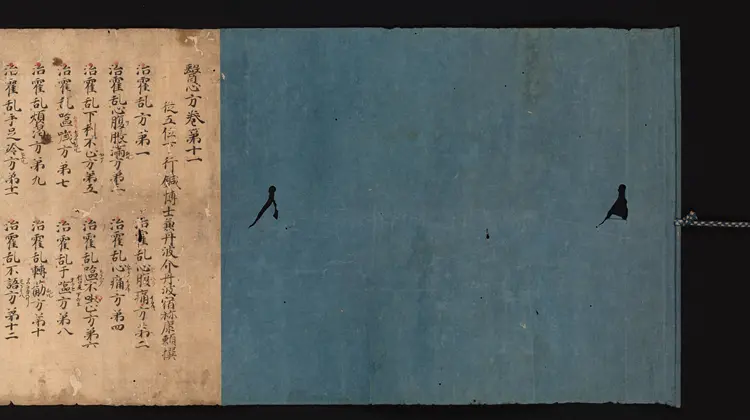 醫心方卷第十一
從五位下行鍼博士兼丹波介丹波宿祢康賴撰
治霍乱方第一
治霍乱心腹痛方第二
治霍乱心腹脹滿方第三
治霍乱心痛方第四
治霍乱下利不止方第五
治霍乱嘔不止方第六
治霍乱嘔噦方第七
治霍乱干嘔方第八
治霍乱煩渴方第九
治霍乱轉筋方第十
治霍乱手足冷方第十一
治霍乱不語方第十二